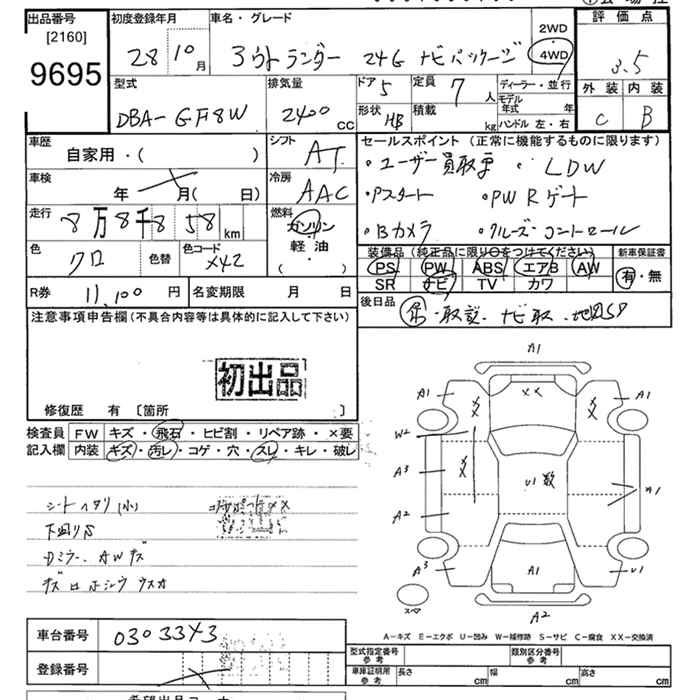 出品番号 初度登録年月 車名・グレード 評価点
[2160] 2WD
9695 28 10月 アウトランダー 24G ナビパッケージ 4WD 3.5
型式 排気量 ドア 5 定員 7人 ディーラー・並行 外装 内装
DBA-GF8W 2400cc 形状 HB 積載 kg モデル年式 年 C B
ハンドル 左・右
車歴 シフト セールスポイント (正常に機能するものに限ります)
自家用・( ) AT ・ユーザー買取車 ・LDW
車検 冷房 ・Pスタート ・PWRゲート
年 月( 日) AAC ・Bカメラ ・クルーズコントロール
走行 8万8千858km 燃料 ガソリン 軽油 ( )
色 クロ 色替 色コード X42 装備品 (純正品に限り○をつけてください) 新車保証書
PS PW ABS エアB AW 有・無
SR ナビ TV カワ
R券 11,100円 名変期限 月 日 後日品
保・取説・ナビ取・地図SD
注意事項申告欄(不具合内容等は具体的に記入して下さい)
初出品
修復歴 有 〔箇所 〕
検査員 FW キズ・飛石・ヒビ割・リペア跡・×要
記入欄 内装 キズ・汚レ・コゲ・穴・スレ・キレ・破レ
シートヘタリ(小)
下回りS
Dミラー、AWキズ
A1
A1 XX XX XX A1
W2
A3 XX U1数 A1
A2
A3 A1 U1
スペア A2
A-キズ E-エクボ U-凹み W-補修跡 S-サビ C-腐食 XX-交換済
車台番号 0303343
登録番号
型式指定番号 参考 類別区分番号 参考
車庫証明用 参考 長さ cm 幅 cm 高さ cm